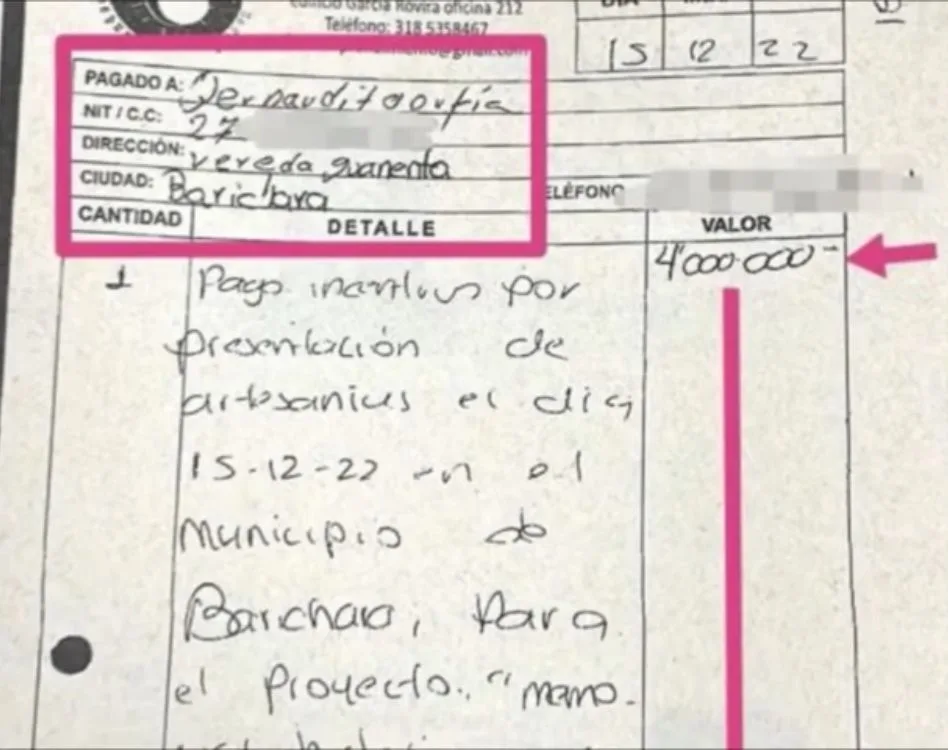 Edificio García Rovira oficina 212
Teléfono: 318 5358467
@gmail.com
DIA
15 12 22
PAGADO A: Bernardita orfía
NIT / C.C: 27
DIRECCIÓN: vereda guanenta
CIUDAD: Barichara
TELÉFONO
CANTIDAD DETALLE VALOR
1 Pago incentivos por 4'000.000-
presentación de
artesanias el dia
15-12-22 en el
Municipio de
Barchara, Para
el Proyecto. "mamo-